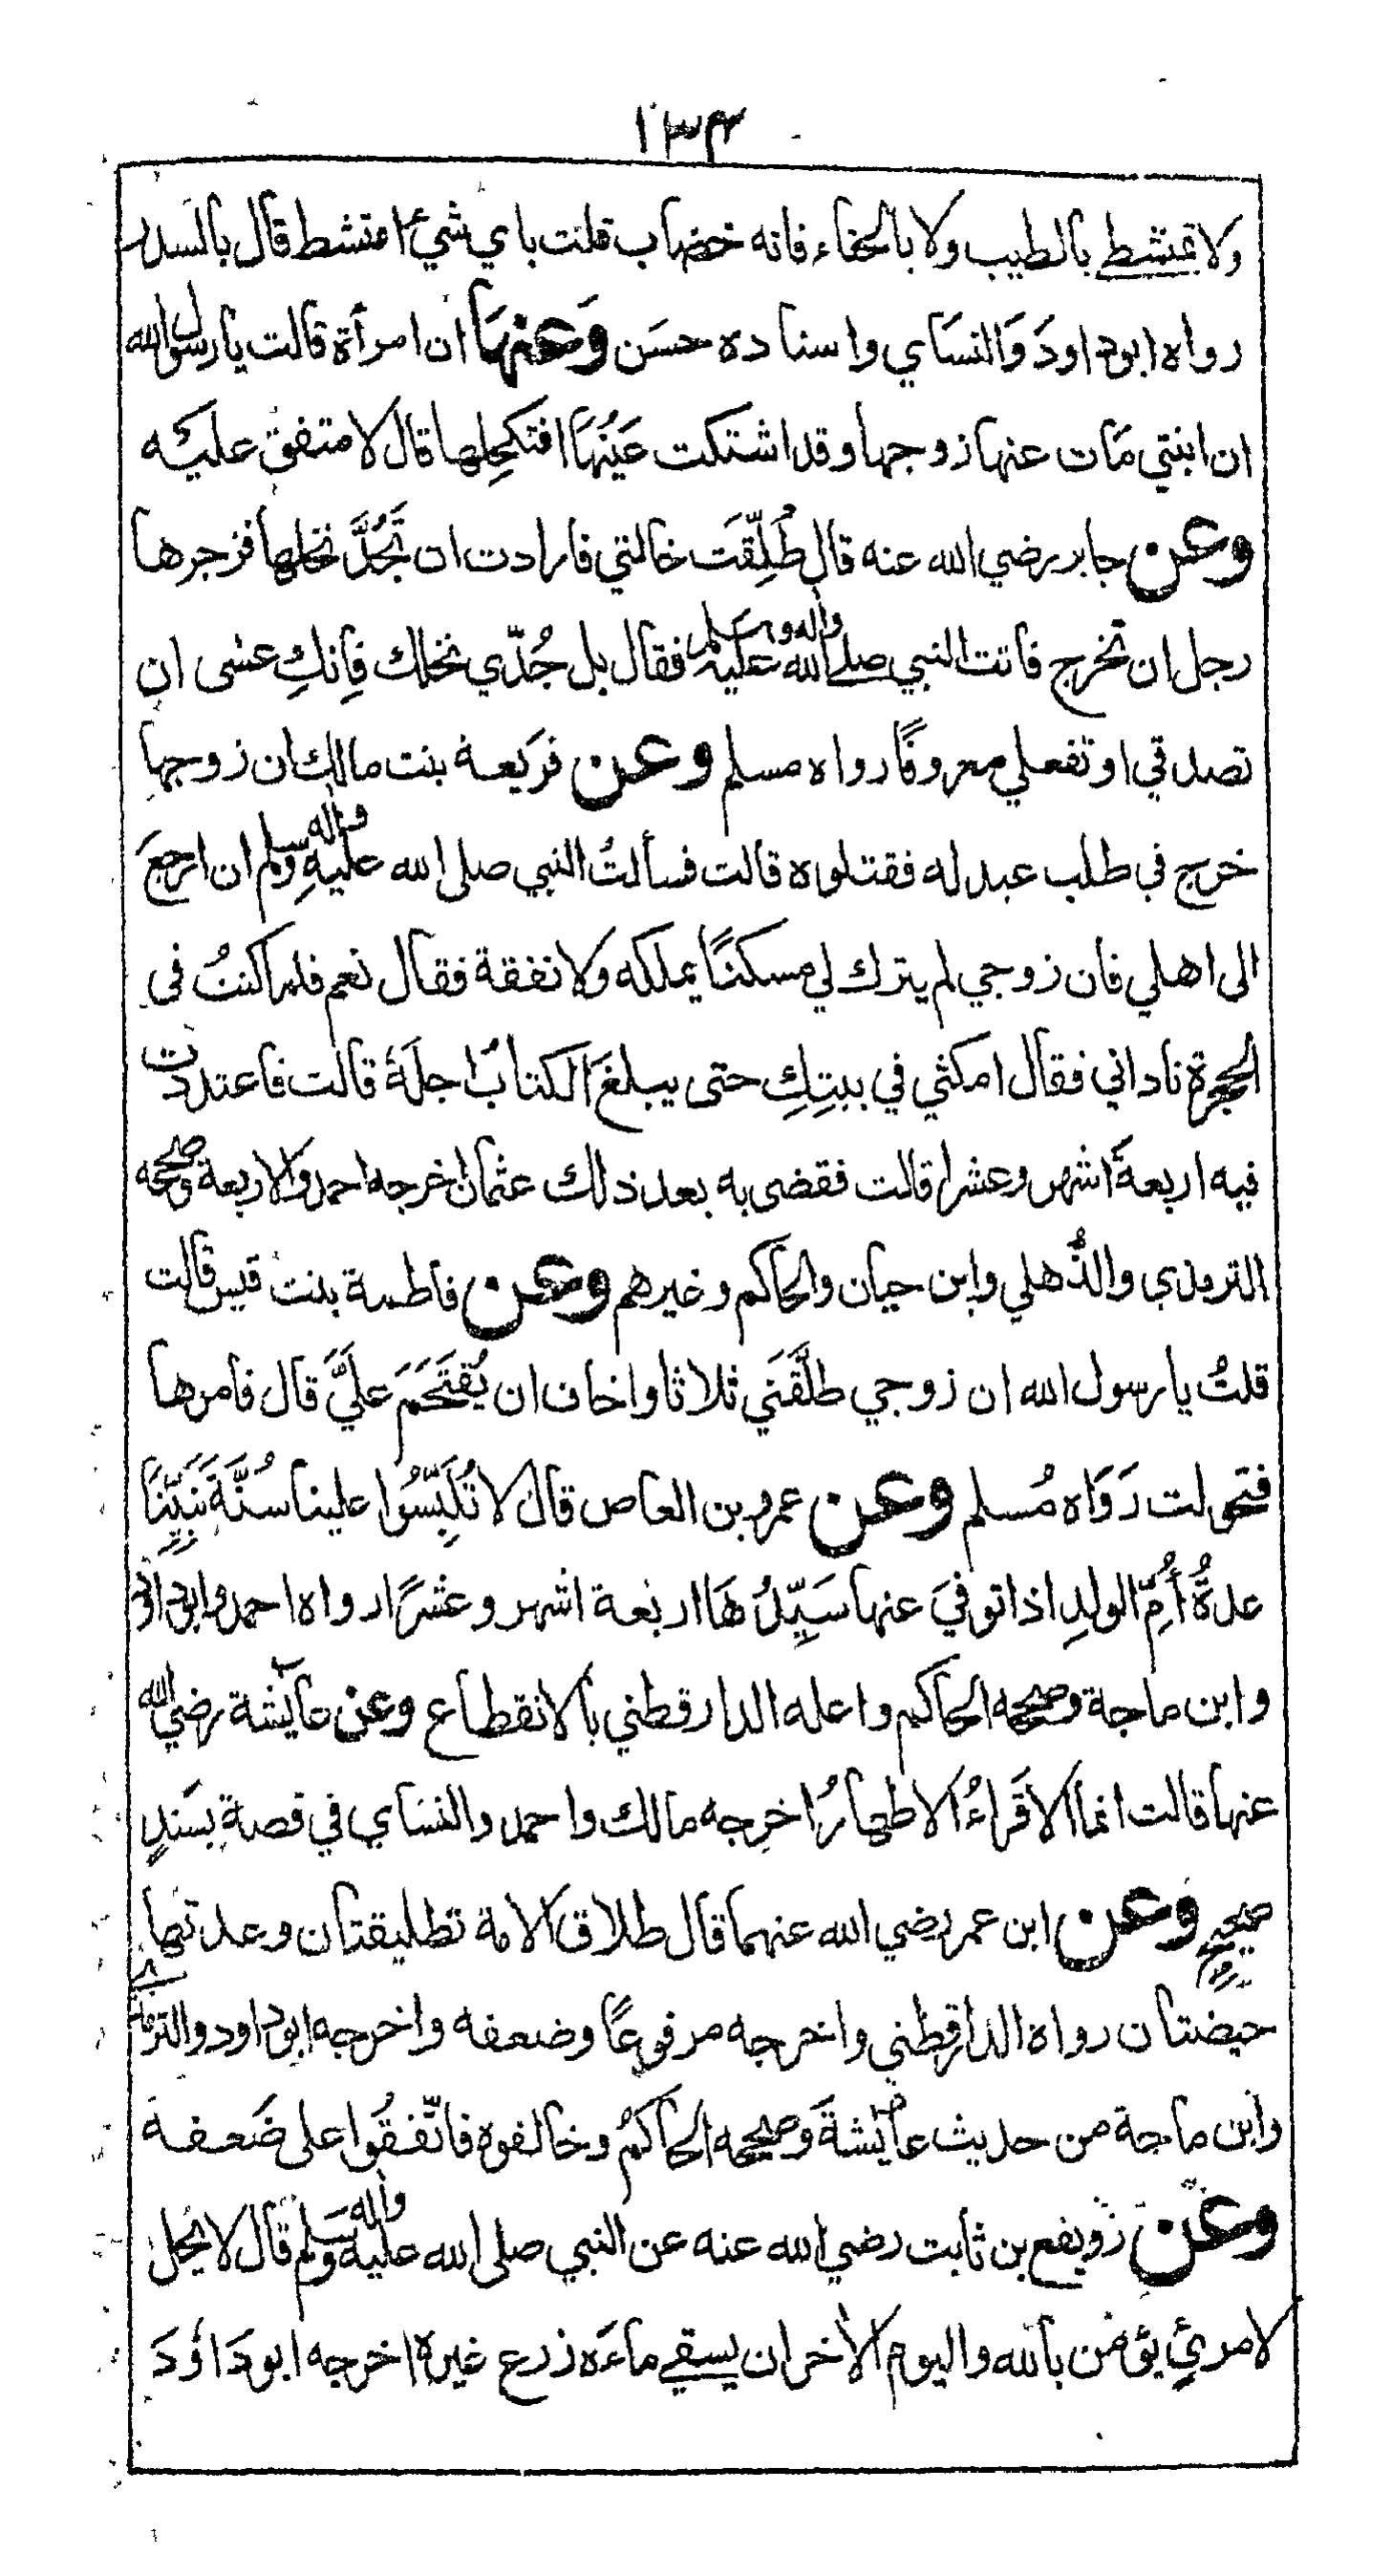 ١٣٤
ولا تمتشط بالطيب ولا بالحناء فانه خضاب قلت باي شيء امتشط قال بالسدر
رواه ابوداود والنساي واسناده حسن وعنها ان امرأة قالت يا رسول الله
ان ابنتي مات عنها زوجها وقد اشتكت عينها افنكحلها قال لا متفق عليه
وعن جابر رضي الله عنه قال طُلِّقَت خالتي فارادت ان تَجُدَّ نخلها فزجرها
رجل ان تخرج فاتت النبي صلى الله عليه واله وسلم فقال بل جُدّي نخلك فانكِ عسى ان
تصدقي او تفعلي معروفًا رواه مسلم وعن فريعة بنت مالك ان زوجها
خرج في طلب عبد له فقتلوه قالت فسألتُ النبي صلى الله عليه واله وسلم ان ارجعَ
الى اهلي فان زوجي لم يترك لي مسكنًا يملكه ولا نفقة فقال نعم فلما كنتُ في
الحجرة ناداني فقال امكثي في بيتِكِ حتى يبلغَ الكتابُ اجلَهُ قالت فاعتددت
فيه اربعةَ اشهر وعشرا قالت فقضى به بعد ذلك عثمان اخرجه احمد والاربعة وصححه
الترمذي والذُّهلي وابن حبان والحاكم وغيرهم وعن فاطمة بنت قيس قالت
قلتُ يا رسول الله ان زوجي طلَّقَني ثلاثا واخاف ان يُقتَحَمَ عليَّ قال فامرها
فتحولت رَوَاه مُسلم وعن عمرو بن العاص قال لا تُلَبِّسُوا علينا سُنَّةَ نَبِيِّنَا
عدةُ أُمِّ الولدِ اذا توفيَ عنها سَيِّدُ هَا اربعة اشهر وعشرًا رواه احمد وابوداؤد
وابن ماجة وصححه الحاكم واعله الدارقطني بالانقطاع وعن عايشة رضي الله
عنها قالت انما الاقَراءُ الاطهارُ اخرجه مالك واحمد والنساي في قصة بسَندٍ
صحيح وعن ابن عمر رضي الله عنهما قال طلاق الامة تطليقتان وعدتها
حيضتان رواه الدارقطني واخرجه مرفوعًا وضعفه واخرجه ابوداود والترمذي
وابن ماجة من حديث عايشةَ وصححه الحاكمُ وخالفوه فاتَّفقُوا على ضَعفه
وعن رويفع بن ثابت رضي الله عنه عن النبي صلى الله عليه واله وسلم قال لا يحل
لامرئٍ يؤمن بالله واليوم الاٰخر ان يسقي ماءَه زرع غيره اخرجه ابودَاوُدَ